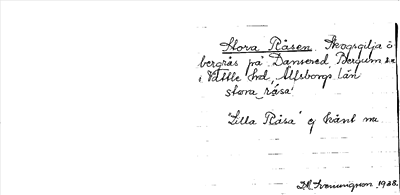 Stora Råsen. Skogsgilja ö
bergrås på Dansered, Bergum sn
i Vättle hd, Älfsborgs län
stora råsa
"Lilla Råsa" ej känt nu
1938.